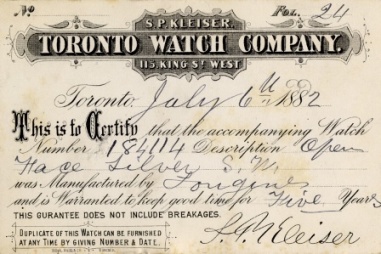 No
Fol. 24
S. P. KLEISER.
TORONTO WATCH COMPANY.
115 KING ST WEST
Toronto. July 6th 1882
This is to Certify that the accompanying Watch
Number 184114 Description Open
Face Silver S. W.
was Manufactured by Longines
and is Warranted to keep good time for Five Years
THIS GURANTEE DOES NOT INCLUDE BREAKAGES.
DUPLICATE OF THIS WATCH CAN BE FURNISHED
AT ANY TIME BY GIVING NUMBER & DATE.
S. P. Kleiser